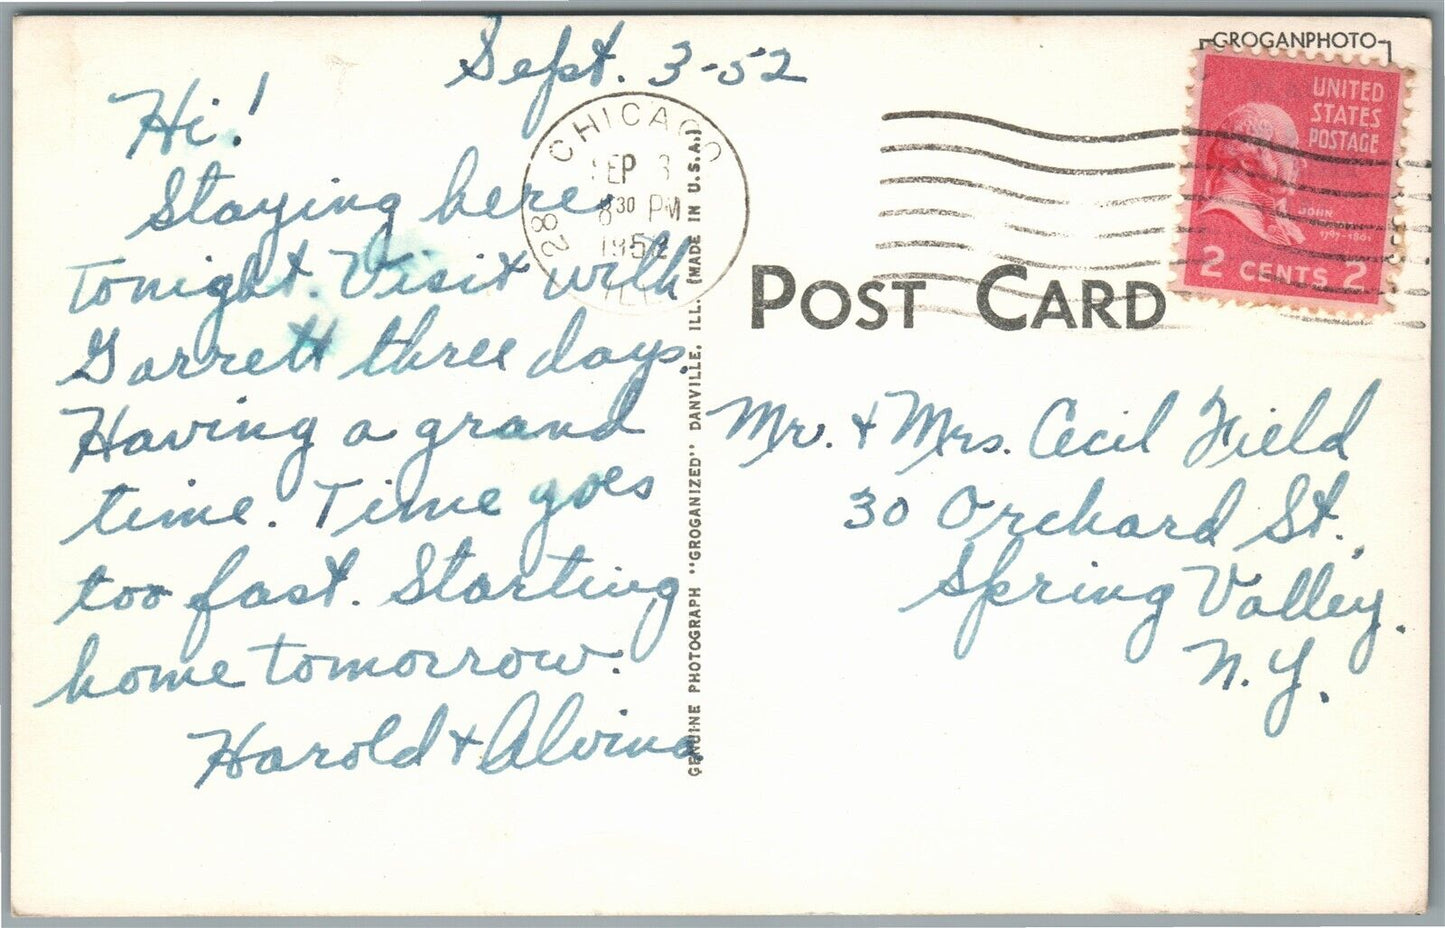 Sept. 3-52
Hi!
Staying here
tonight. Visit with
Garrett three days.
Having a grand
time. Time goes
too fast. Starting
home tomorrow.
Harold & Alvina
CHICAGO
SEP 3
8 30 PM
1952
ILL.
28
GENUINE PHOTOGRAPH "GROGANIZED" DANVILLE, ILL. (MADE IN U.S.A.)
GROGANPHOTO
UNITED
STATES
POSTAGE
JOHN
1797-1801
2 CENTS 2
POST CARD
Mr. & Mrs. Cecil Field
30 Orchard St.,
Spring Valley.
N.Y.